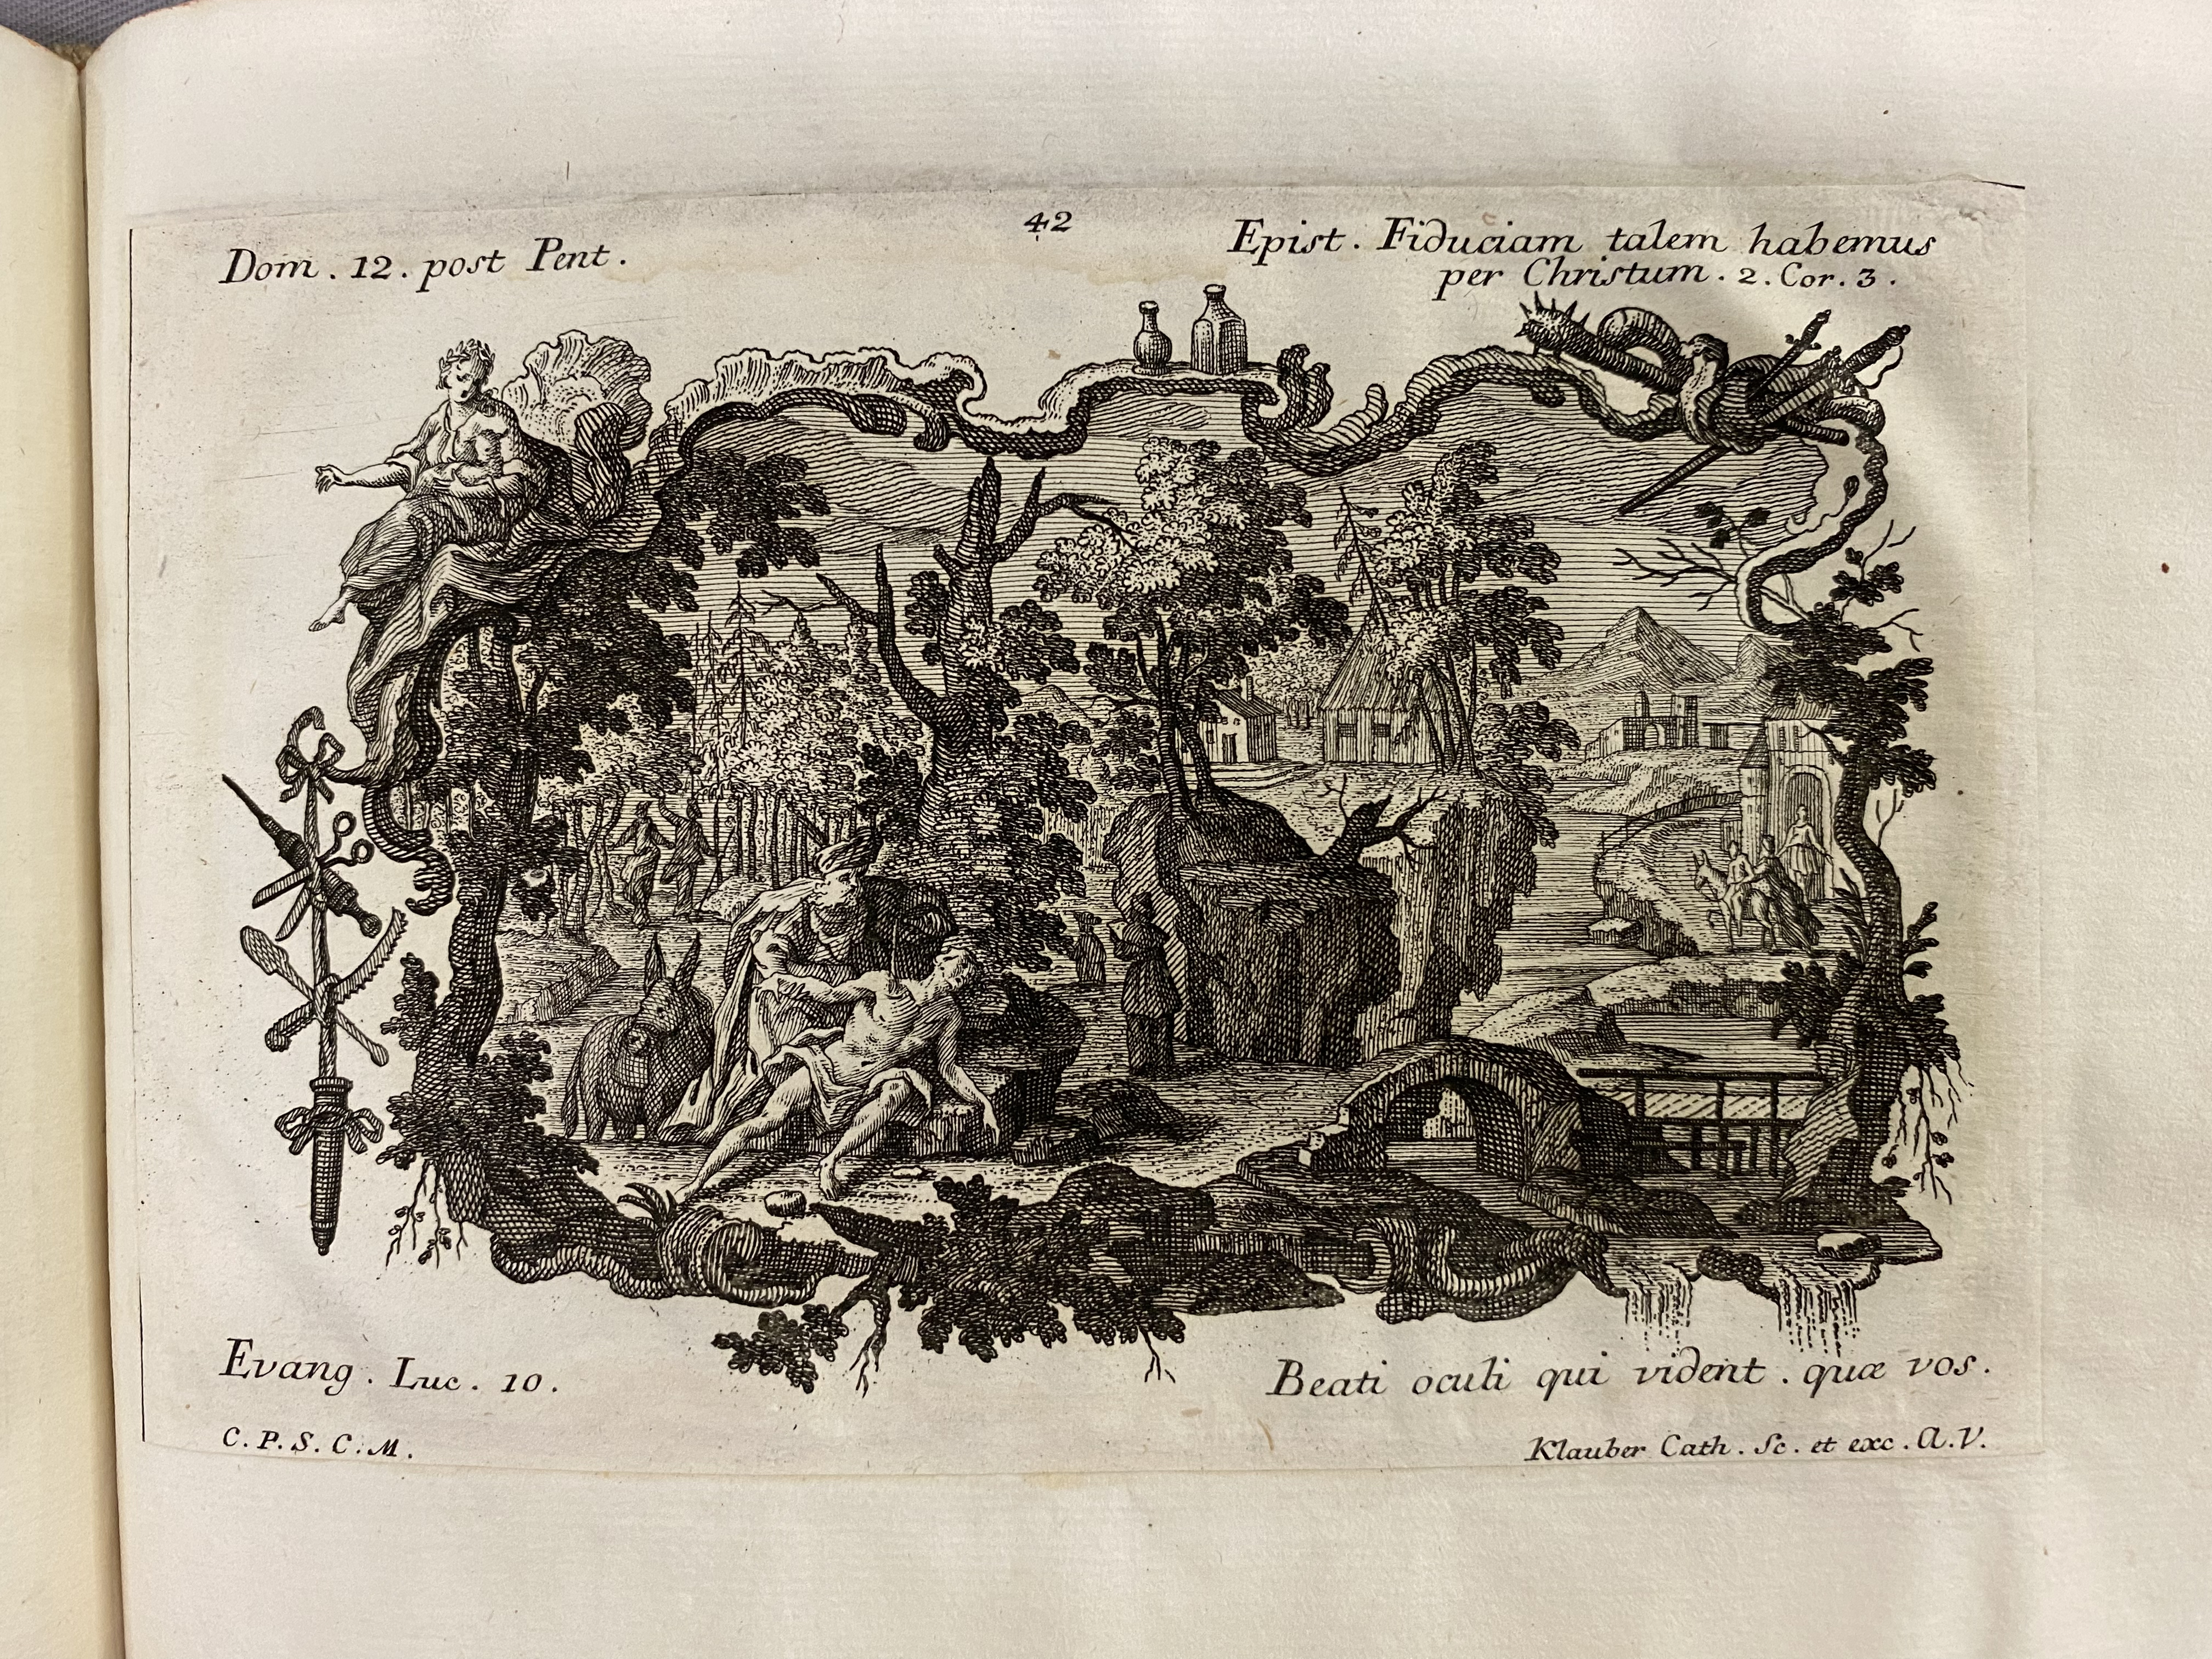 42
Dom. 12. post Pent.
Epist. Fiduciam talem habemus
per Christum. 2. Cor. 3.
Evang. Luc. 10.
Beati oculi qui vident. quæ vos.
C. P. S. C. M.
Klauber Cath. Sc. et exc. A. V.